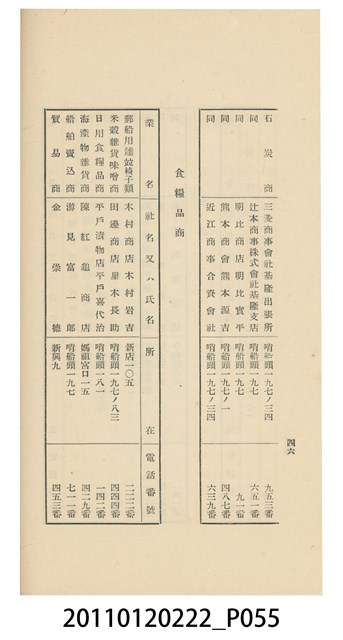 石炭商 三菱商事會社基隆出張所 哨船頭一九七ノ三四 九五三番
同 辻本商事株式會社基隆支店 同 六五一番
同 明比商店明比實平 哨船頭一九七 九一番
同 熊本商會熊本源吉 哨船頭一九七ノ一 四八七番
同 近江商事合資會社 哨船頭一九七ノ三四 六三九番
食糧品商
業名 社名又ハ氏名 所在 電話番號
木村商店木村岩吉 新店一〇五 二二二番
米穀雜貨味噌商 田邊商店 哨船頭一九七ノ八三 四四四番
日用食糧品商 平戶漬物店平戶喜代治 哨船頭一八一 一四二番
海產物雜貨商 陳紅龜商店 媽祖宮口一五 四二九番
船舶賣込商 游見富一郎 哨船頭一九七 七一一番
貿易商 金崇德 新興九 四五三番
四六
20110120222_P055